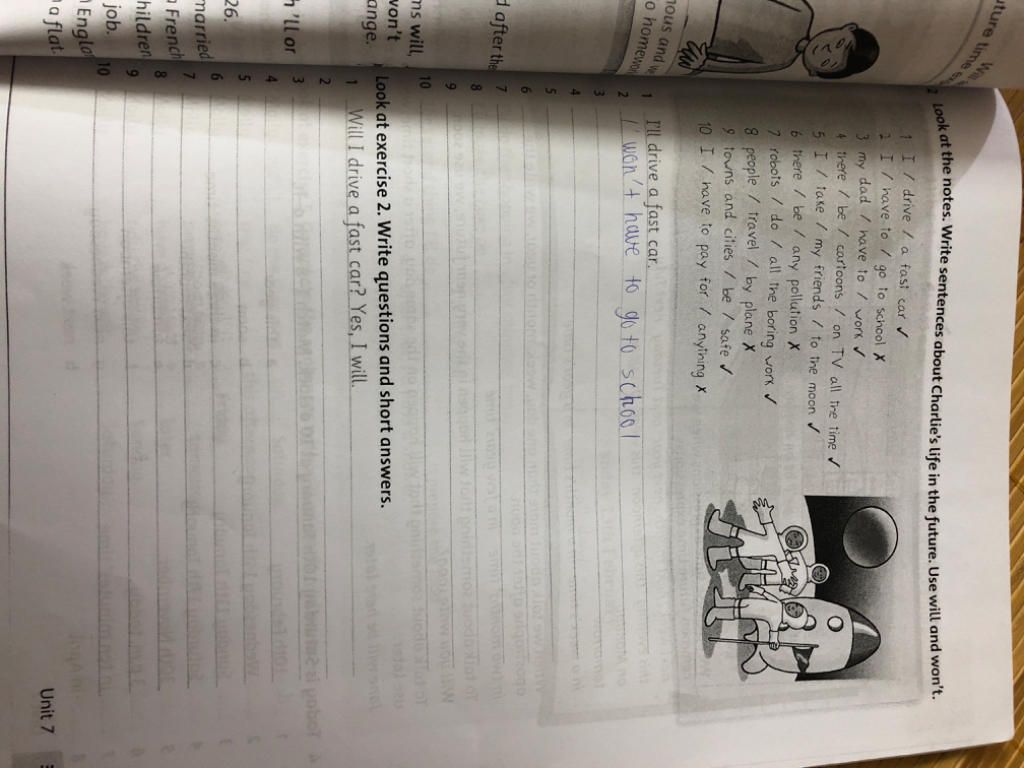 uture time
Will
nous and
o homework
d after the
ms will,
won't
ange.
h 'll or
26.
married
French
hildren
job.
Engla
a flat.
2 Look at the notes. Write sentences about Charlie's life in the future. Use will and won't.
1 I / drive / a fast car ✓
2 I / have to / go to school ✗
3 my dad / have to / work ✓
4 there / be / cartoons / on TV all the time ✓
5 I / take / my friends / to the moon ✓
6 there / be / any pollution ✗
7 robots / do / all the boring work ✓
8 people / travel / by plane ✗
9 towns and cities / be / safe ✓
10 I / have to pay for / anything ✗
1 I'll drive a fast car.
2 I' won't have to go to school
3
4
5
6
7
8
9
10
Look at exercise 2. Write questions and short answers.
1 Will I drive a fast car? Yes, I will.
2
3
4
5
6
7
8
9
10
Unit 7